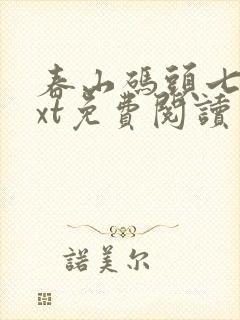 春山碼頭七
xt免費閱讀
諾美尔